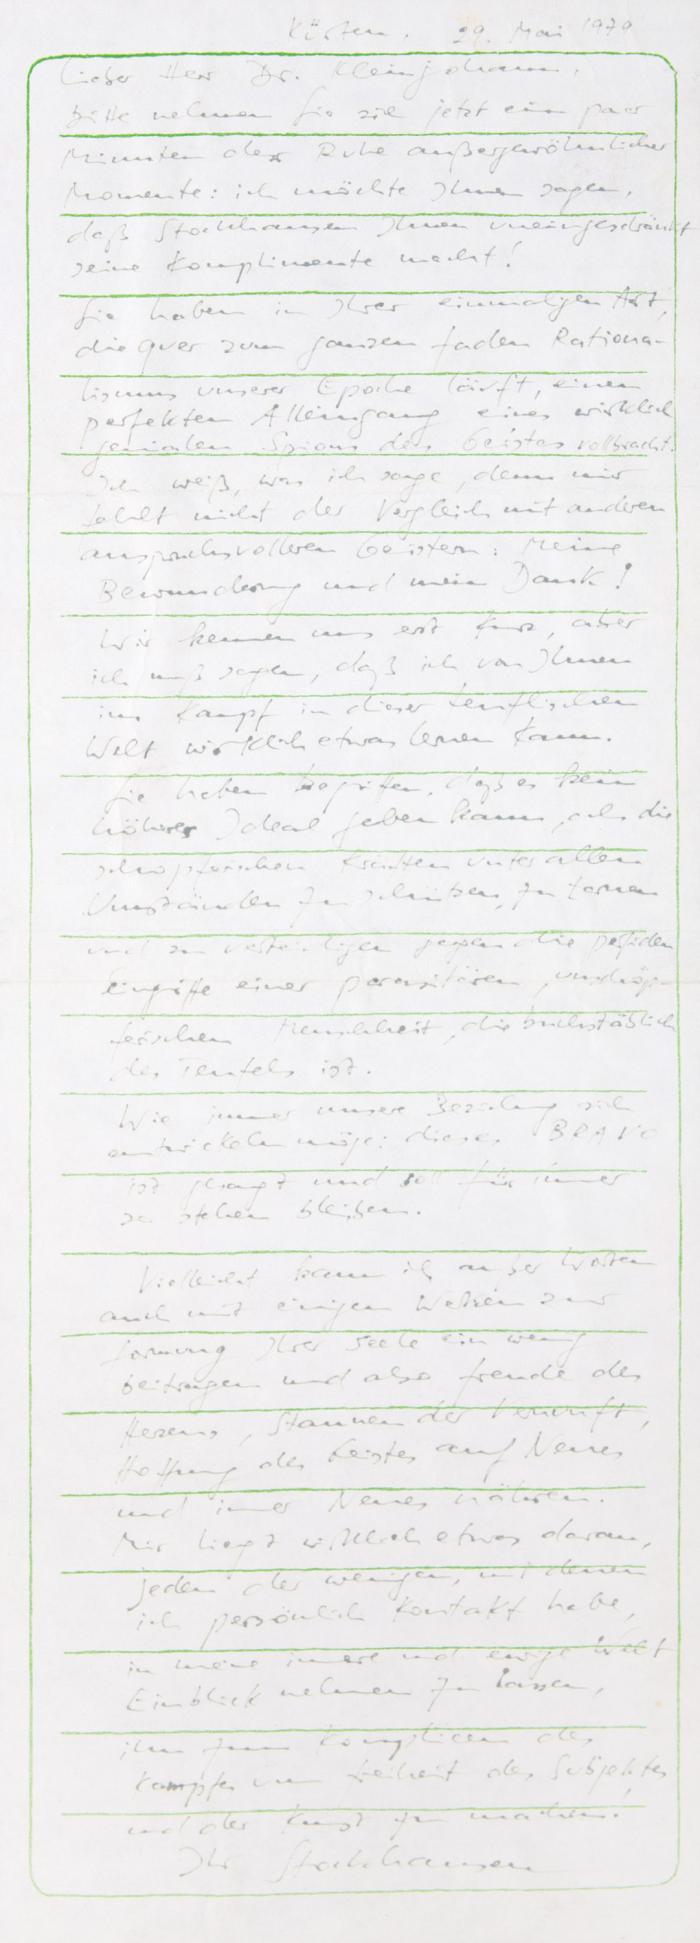 Kürten, 29. Mai 1979
Lieber Herr Dr. Kleinjohann,
bitte nehmen Sie sich jetzt ein paar
Minuten der Ruhe außergewöhnlicher
Momente: ich möchte Ihnen sagen,
daß Stockhausen Ihnen uneingeschränkt
seine Komplimente macht!
Sie haben in Ihrer einmaligen Art,
die quer zum ganzen faden Rationa-
lismus unserer Epoche läuft, einen
perfekten Alleingang eines wirklich
genialen Spions des Geistes vollbracht.
Ich weiß, was ich sage, denn mir
fehlt nicht der Vergleich mit anderen
anspruchsvolleren Geistern: Meine
Bewunderung und mein Dank!
Wir kennen uns erst kurz, aber
ich muß sagen, daß ich von Ihnen
im Kampf in dieser teuflischen
Welt wirklich etwas lernen kann.
Sie haben begriffen, daß es kein
höheres Ideal geben kann, als die
schöpferischen Kräfte unter allen
Umständen zu schützen, zu formen
und zu verteidigen gegen die perfiden
Eingriffe einer parasitären, unschöp-
ferischen Menschheit, die buchstäblich
des Teufels ist.
Wie immer unsere Beziehung sich
entwickeln möge: dieses BRAVO
ist gesagt und soll für immer
so stehen bleiben.
Vielleicht kann ich außer Worten
auch mit einigen Werken zur
Formung Ihrer Seele ein wenig
beitragen und also Freude des
Herzens, Staunen der Vernunft,
Hoffnung des Geistes auf Neues
und immer Neues nähren.
Mir liegt wirklich etwas daran,
jeden der wenigen, mit denen
ich persönlich Kontakt habe,
in meine innere und ewige Welt
Einblick nehmen zu lassen,
ihn zum Komplizen des
Kampfes um Freiheit des Subjektes
und der Kunst zu machen!
Ihr Stockhausen